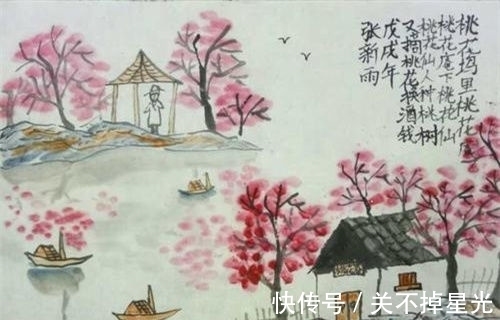 桃花坞里桃花庵
桃花庵下桃花仙
桃花仙人种桃树
又摘桃花换酒钱
戊戌年
张新雨
快传号 / 关不掉星光